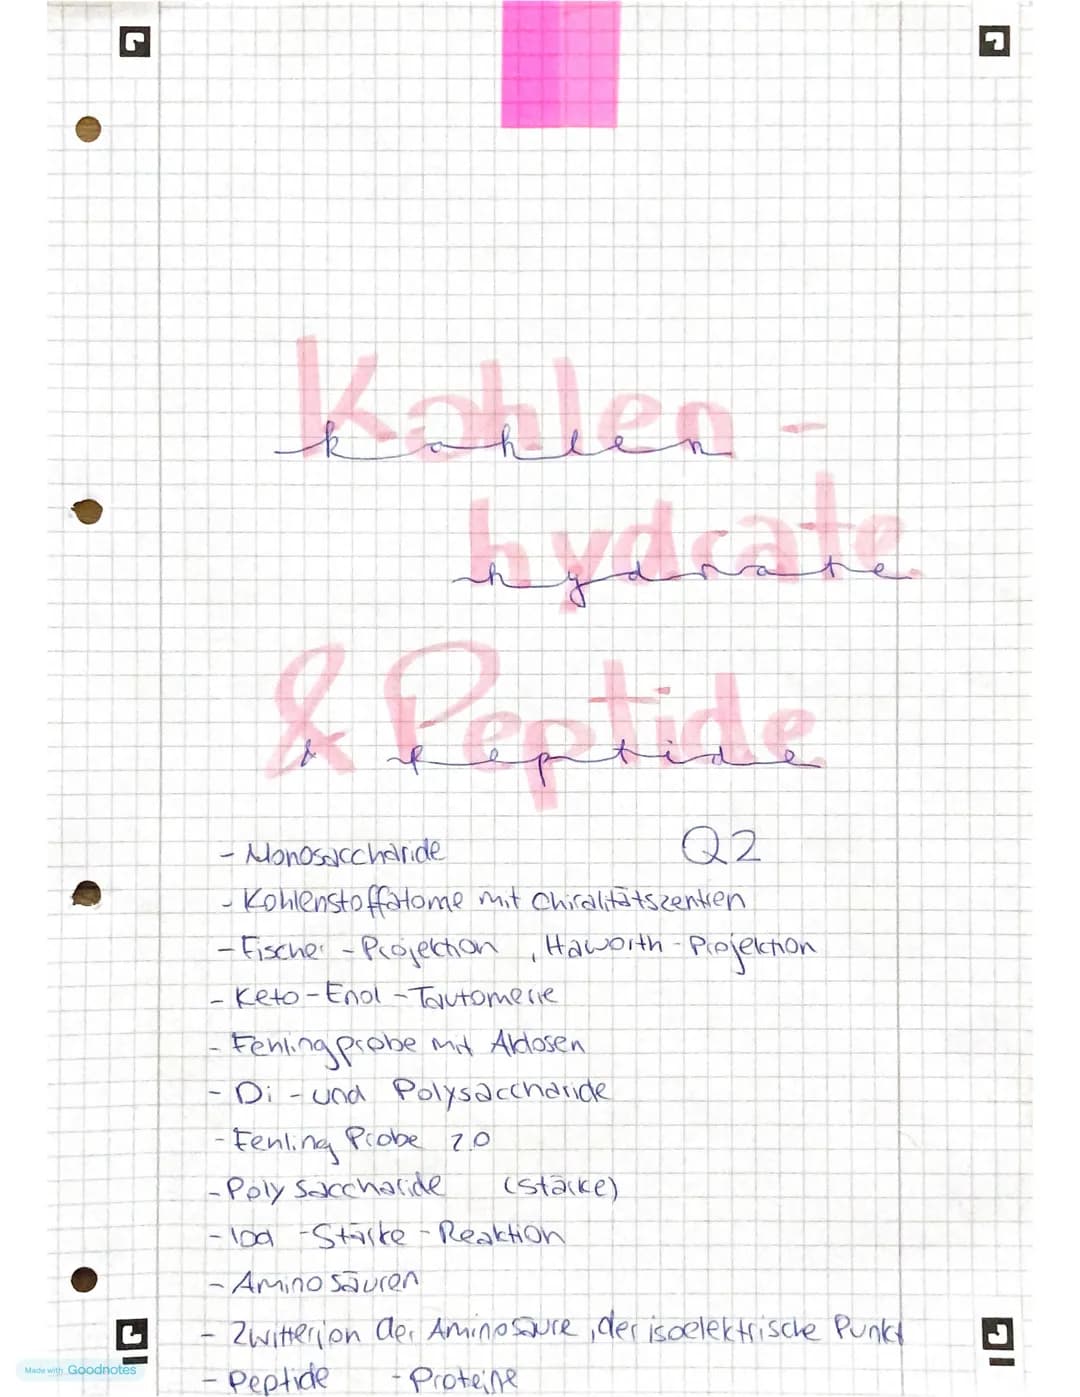 Kohlen-
kohlen
hydrate
hydrate
& Peptide
& Peptide
- Monosaccharide Q2
- Kohlenstoffatome mit Chiralitätszentren
- Fischer - Projektion , Haworth - Projektion
- Keto - Enol - Tautomerie
- Fehlingprobe mit Aldosen
- Di - und Polysaccharide
- Fehling Probe 2.0
- Poly saccharide (stärke)
- Iod - Stärke - Reaktion
- Amino säuren
- Zwitterion der Aminosäure , der isoelektrische Punkt
- Peptide - Proteine
Made with Goodnotes